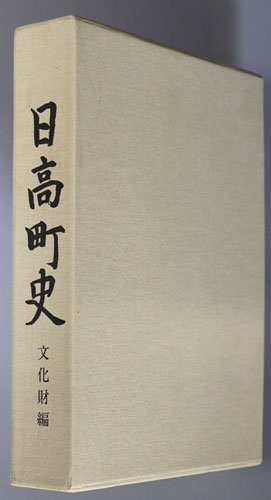 日高町史
文化財編